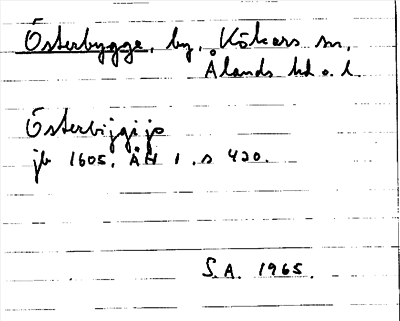 Österbygge, by, Kökars sn,
Ålands hd o. l.
Österbijgijo
jb 1605. ÅH 1. s 420.
S.A. 1965.